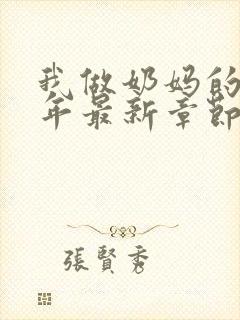 我做奶妈的
年最新章節
張賢秀